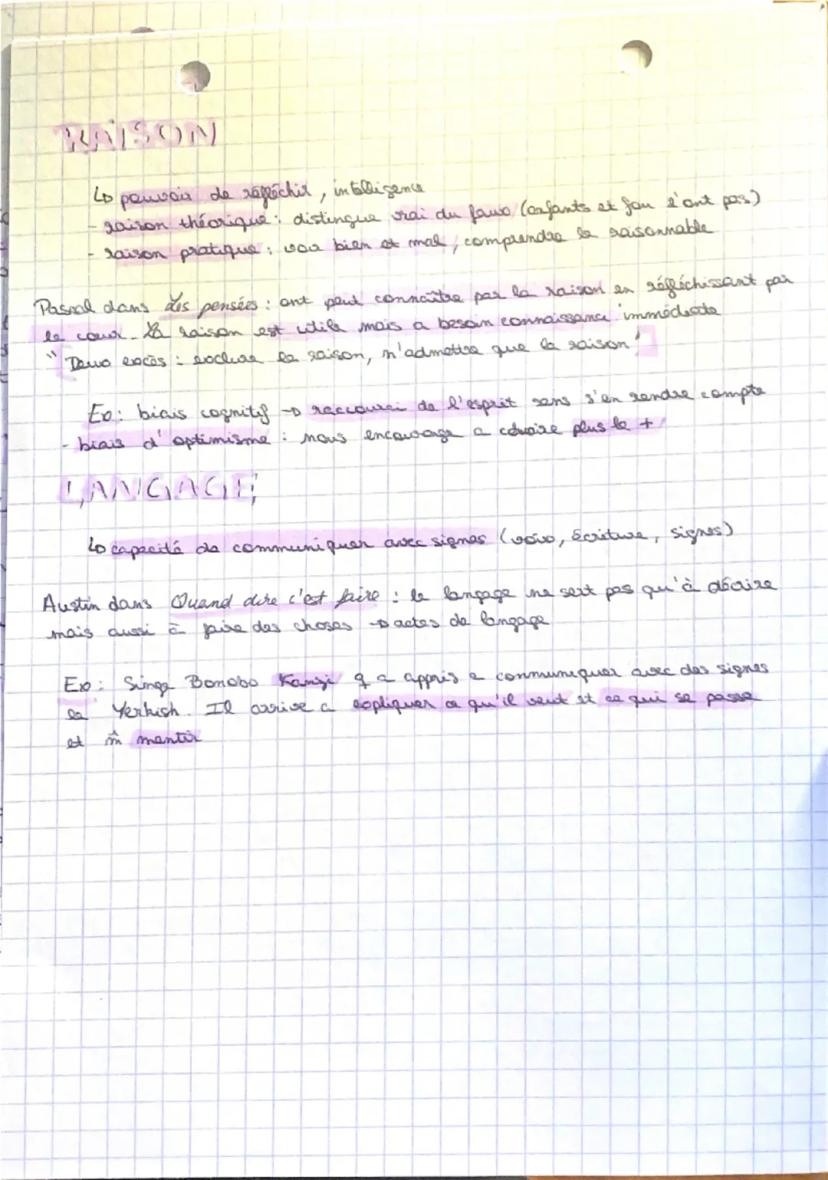 RAISON
↳ pouvoir de réfléchir, intelligence
- raison théorique : distingue vrai du faux (enfants et fou l'ont pas)
- raison pratique : voir bien et mal, comprendre le raisonnable
Pascal dans Les pensées : ont peut connaître par la raison en réfléchissant par
le cœur. La raison est utile mais a besoin connaissance immédiate
"Deux excès : exclure la raison, n'admettre que la raison"
Ex : biais cognitif → raccourci de l'esprit sans s'en rendre compte
- biais d'optimisme : nous encourage a plus le +
LANGAGE
↳ capacité de communiquer avec signes (voix, écriture, signes)
Austin dans Quand dire c'est faire : le langage ne sert pas qu'à décrire
mais aussi à faire des choses → actes de langage
Ex : Singe Bonobo Kanzi q a appris a communiquer avec des signes
le Yerkish. Il arrive a expliquer ce qu'il veut et ce qui se passe
et m̂ mentir